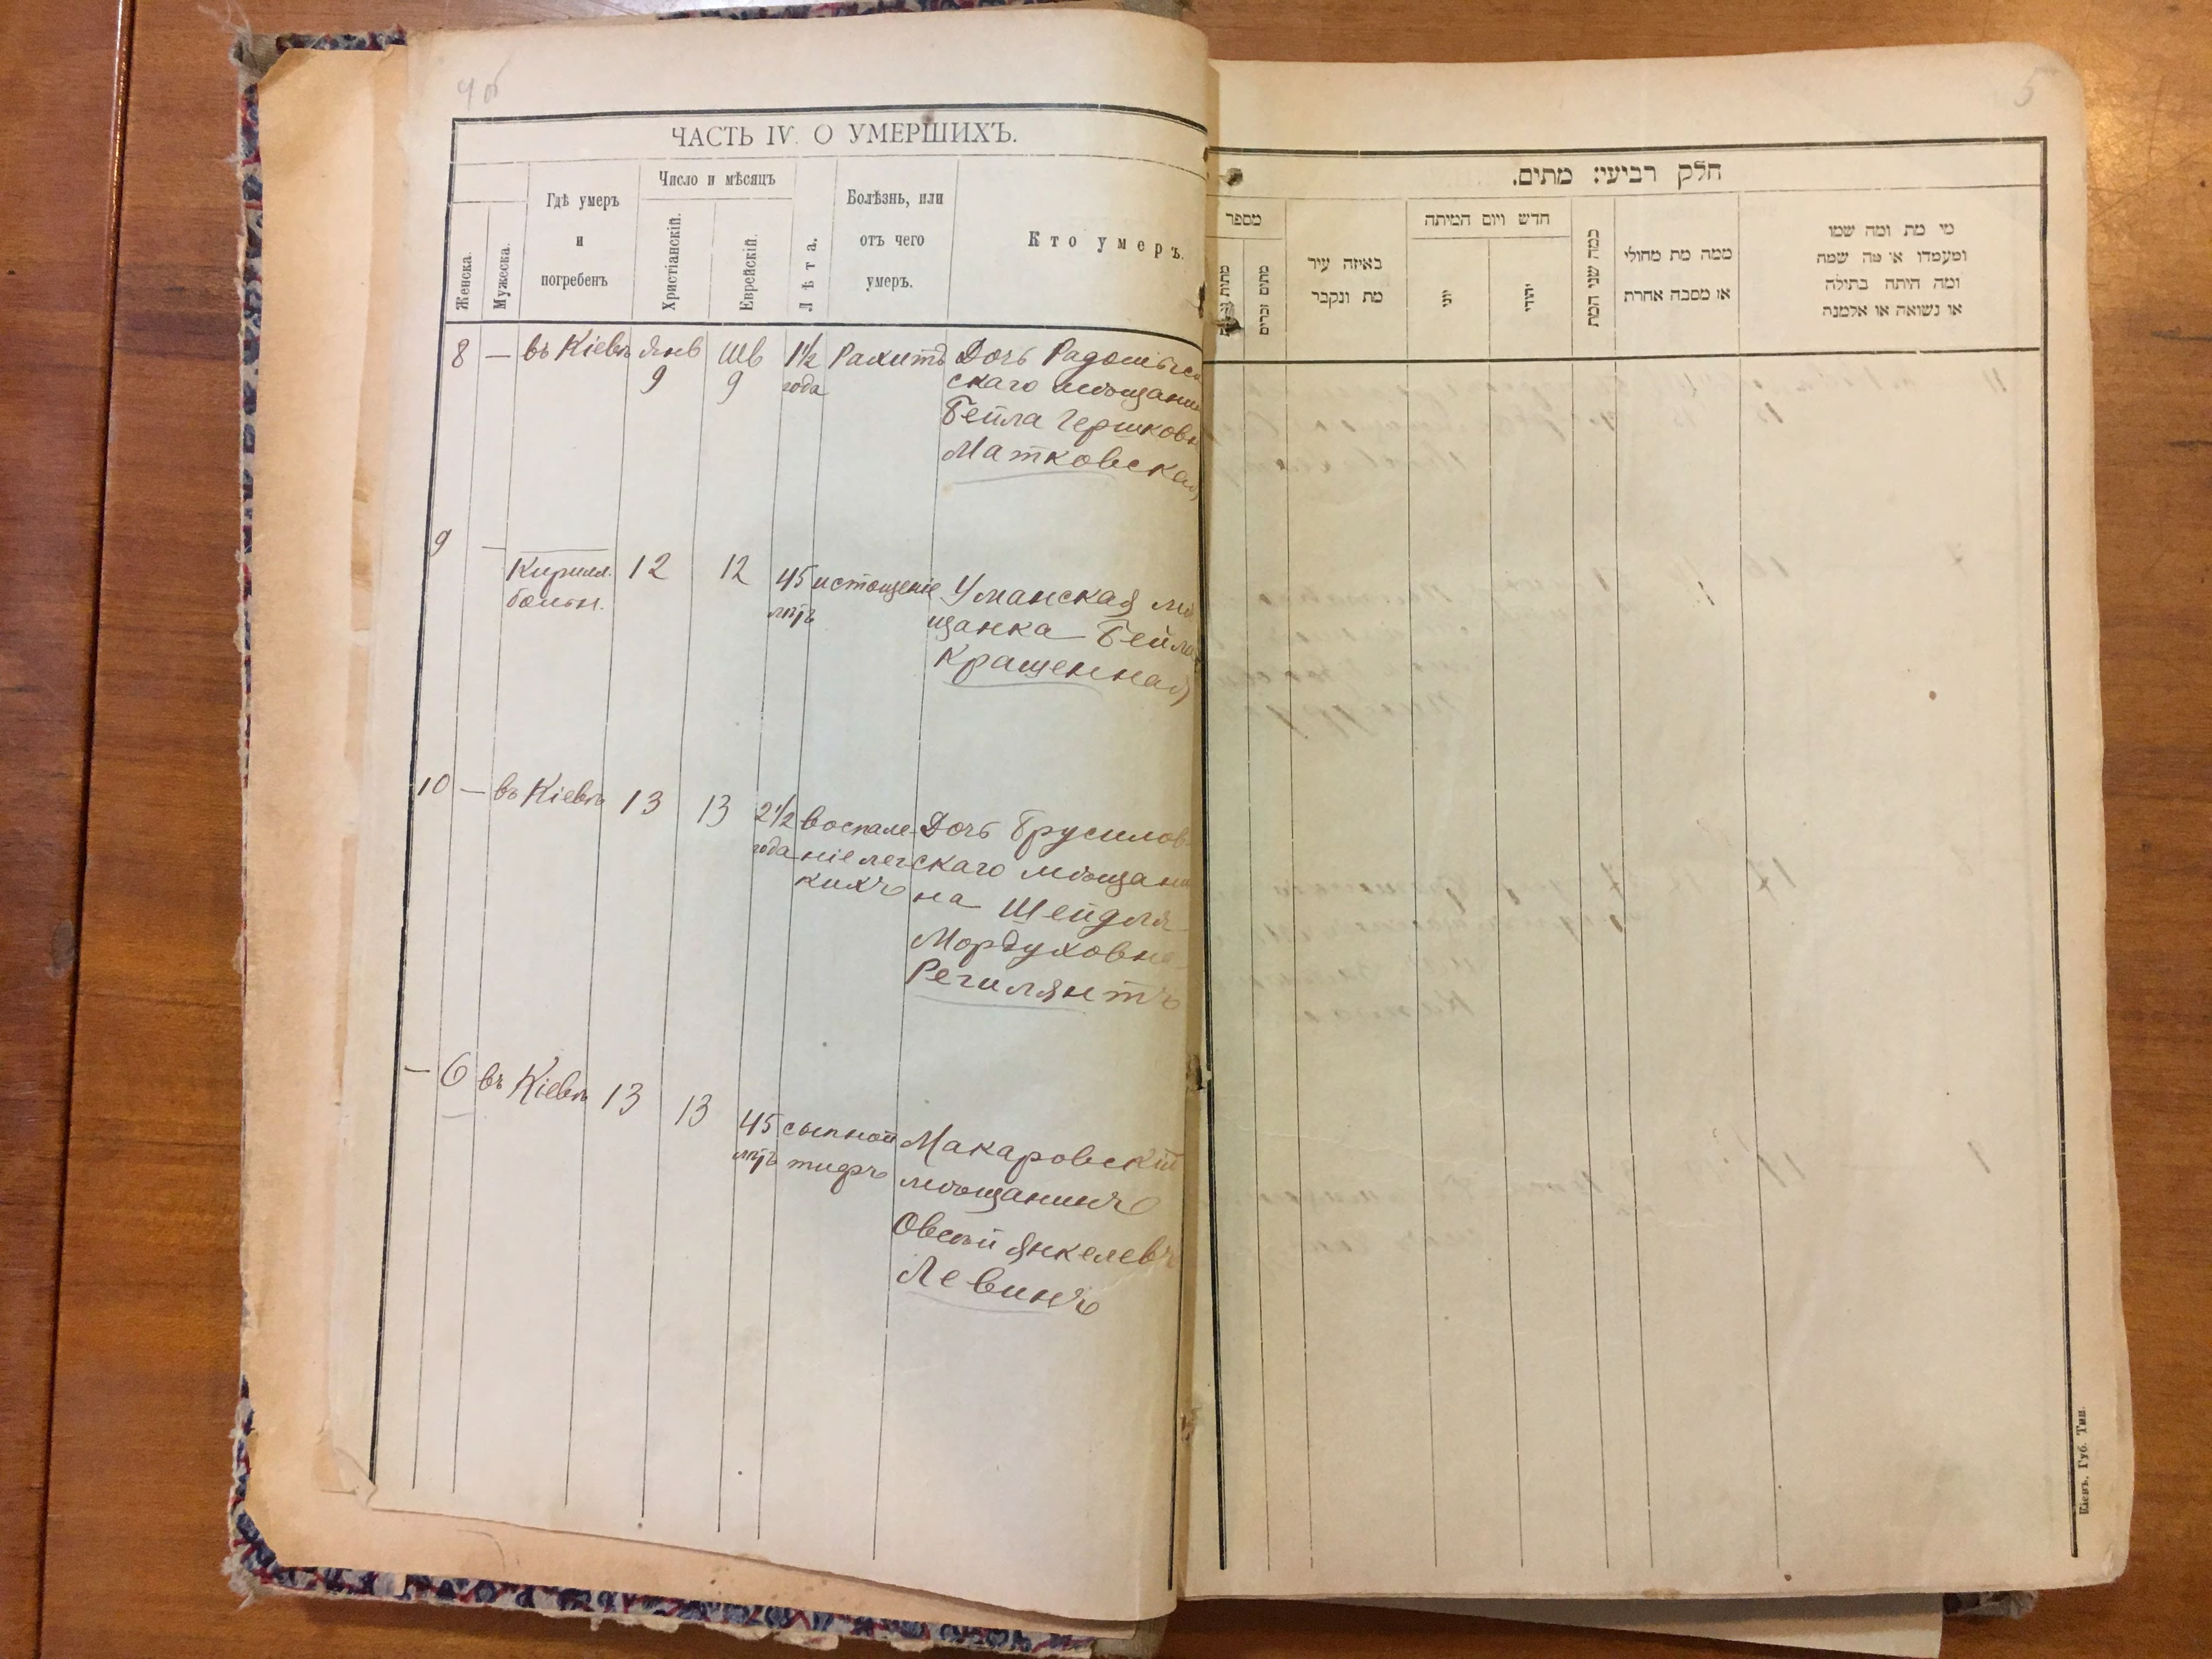 4 об
ЧАСТЬ IV. О УМЕРШИХЪ.
Женска.
Мужеска.
Гдѣ умеръ
и
погребенъ
Число и мѣсяцъ
Христіанскій.
Еврейскій.
Лѣта.
Болѣзнь, или
отъ чего
умеръ.
Кто умеръ.
8 — въ Кіевѣ Янв 9 Шв 9 1½ года Рахитъ Дочь Радомысль
скаго мѣщанин
Бейла Гершковн
Матковская
9 — Кирилл. 12 12 45 истощеніе Уманская мѣ
больн. лѣтъ щанка Бейла
Кращенная
10 — въ Кіевѣ 13 13 2½ воспале- Дочь Брусилов-
года ніе лег- скаго мѣщани
кихъ на Шейдля
Мордуховна
Регилянтъ
— 6 въ Кіевѣ 13 13 45 сыпной Макаровскій
лѣтъ тифъ мѣщанинъ
Овсѣй Янкелевъ
Левинъ
5
חלק רביעי: מתים.
מספר
מתים זכרים
באיזה עיר
מת ונקבר
חדש ויום המיתה
יוני
יהודי
כמה שני המת
ממה מת מחולי
או מסבה אחרת
מי מת ומה שמו
ומעמדו או מה שמה
ומה היתה בתולה
או נשואה או אלמנה
Кіевъ, Губ. Тип.